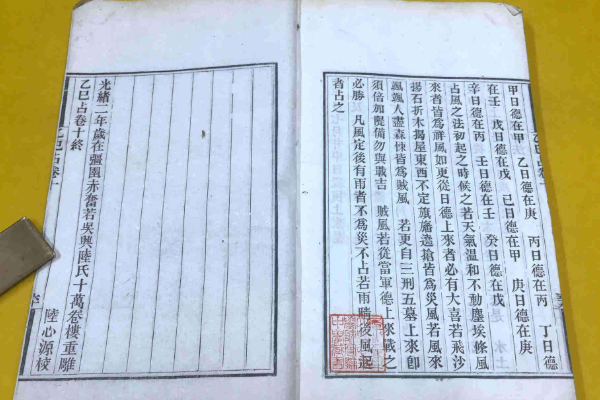 甲日德在甲 乙日德在庚 丙日德在丙 丁日德
在壬 戊日德在戊 己日德在甲 庚日德在庚
辛日德在丙 壬日德在壬 癸日德在戊
占風之法初起之時候之若天氣溫和不動塵埃條風
來者皆為祥風如更從日德上來者必有大喜若飛沙
揚石折木揭屋東西不定旗旛逸搶皆為災風若風來
颯颯人盡森悚皆為賊風 若更自三刑五墓上來卽
須倍加隄備勿與戰吉 賊風若從當軍德上來戰之
必勝 凡風定後有雨者不為災不占若雨晴後風起
者占之
乙巳占卷十
光緒二年歲在彊圉赤奮若吳興陸氏十萬卷樓重雕
乙巳占卷十終
陸心源校